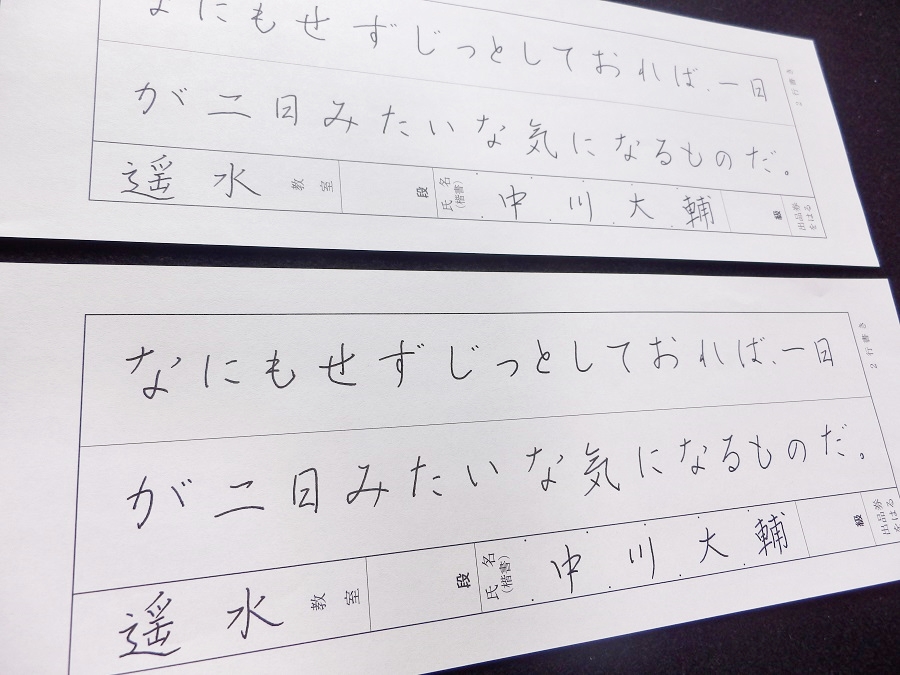 なにもせずじっとしておれば、一日
2行書き
が二日みたいな気になるものだ。
遥水 教室 段 氏名(楷書) 中川大輔 級 出品券をはる
なにもせずじっとしておれば、一日
2行書き
が二日みたいな気になるものだ。
遥水 教室 段 氏名(楷書) 中川大輔 級 出品券をはる